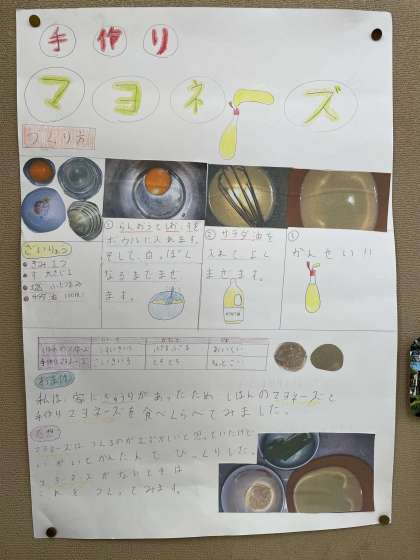 手作り
マヨネーズ
つくり方
ざいりょう
● きみ 1つ
● す 大さじ1
● 塩 ふたつまみ
● サラダ油 100ml
① らんおうと塩、すを
ボウルに入れます。
そして、白っぽく
なるまでまぜ
ます。
② サラダ油を
入れてよく
まぜます。
③
かんせい!!
おまけ
私は、家にきゅうりがあったため しはんのマヨネーズと
手作りマヨネーズを食べくらべてみました。
感想
マヨネーズは つくるのがむずかしいと思っていたけど
いがいとかんたんで びっくりした。
マヨネーズがないときは
これを つくってみます。